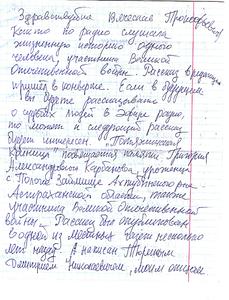 Здравствуйте Вячеслав Прокофьевич
Как-то по радио слушала
жизненную историю одного
человека, участника Великой
Отечественной войны. Рассказ
пришёл в конверте. Если в будущем
Вы будете рассказывать
о судьбах людей в эфире радио,
то может и следующий рассказ
будет интересен.
криница" посвящается памяти Григория
Александровича, уроженца
с Полого Займище Ахтубинского р-на
Астраханской области, также
участника Великой Отечественной
войны. Рассказ был опубликован
в одной из местных газет несколько
лет назад. А написан
Дмитрием Николаевичем, моим отцом